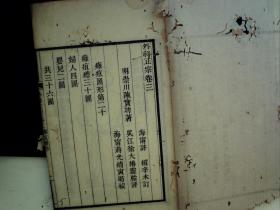 外科正宗卷三
明崇川陳實功著
海甯許楣辛木訂
吳江徐大椿靈胎評
海甯蔣光焴寅昉校
癰疽圖形第二十
癰疽總三十圖
婦人四圖
嬰兒二圖
共三十六圖